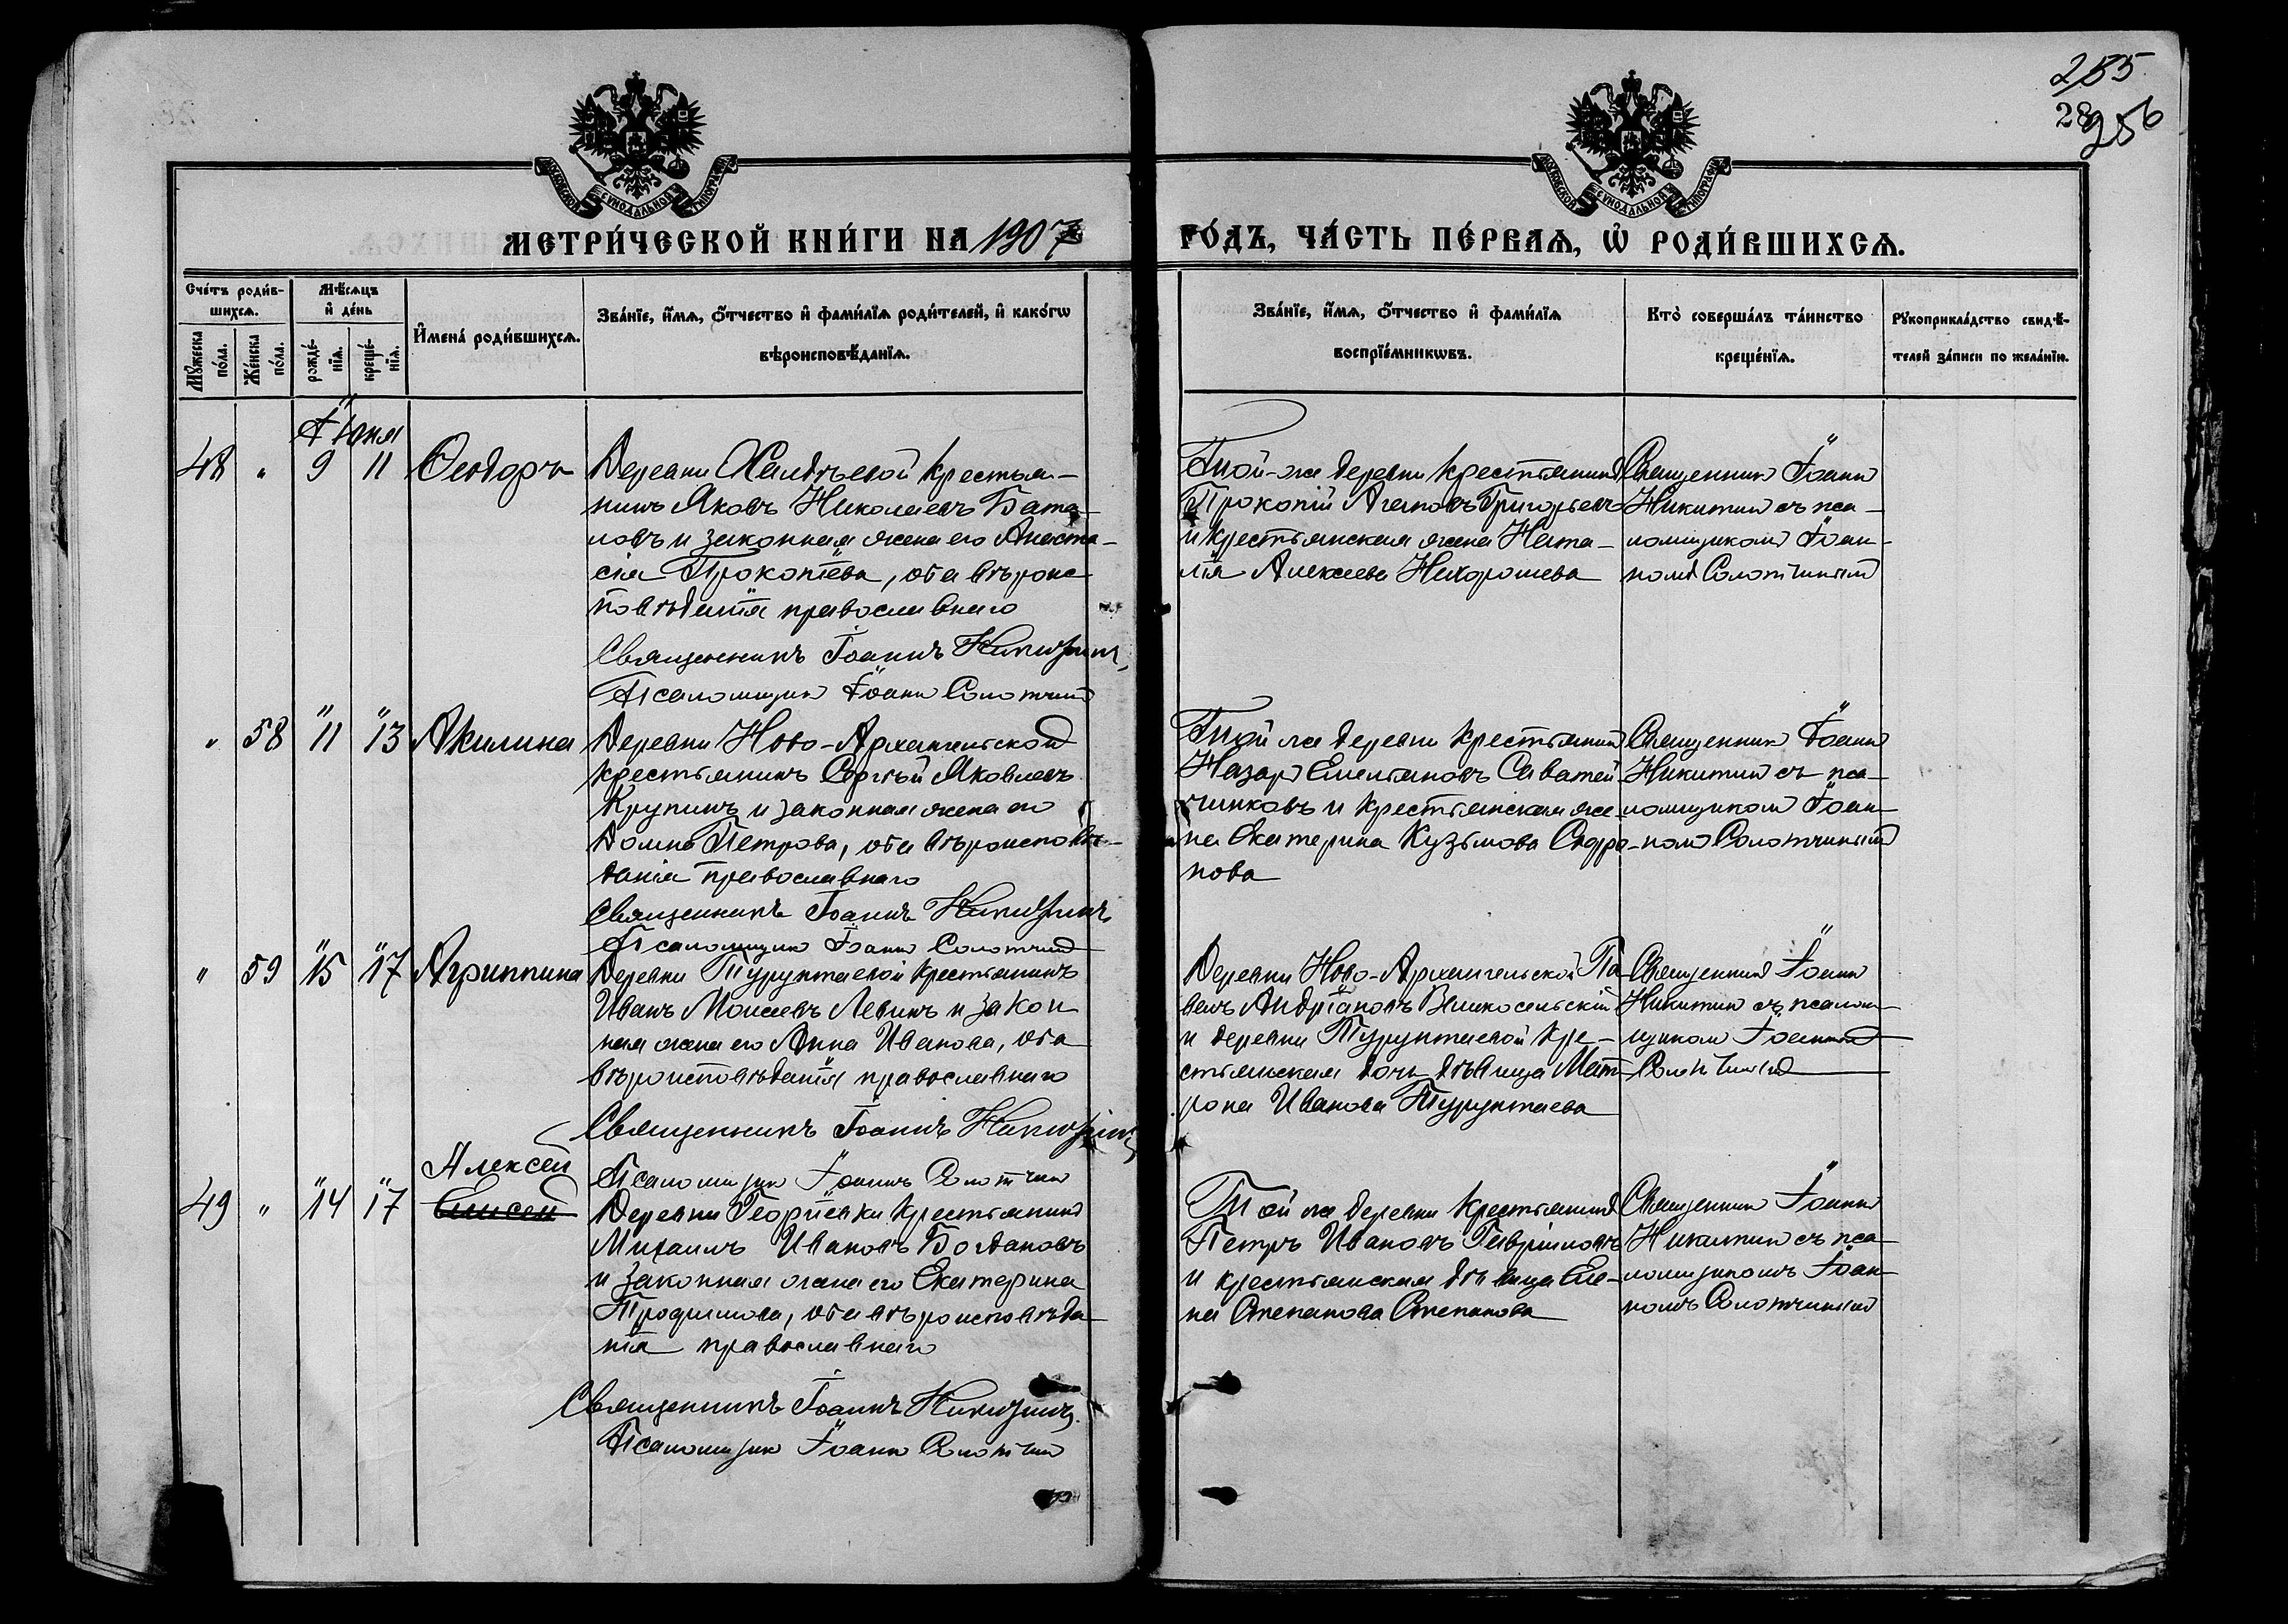 255
28
256
МОСКОВСКОЙ СѴНОДАЛЬНОЙ ТИПОГРАФІИ
МОСКОВСКОЙ СѴНОДАЛЬНОЙ ТИПОГРАФІИ
МЕТРИ́ЧЕСКОЙ КНИ́ГИ НА 1907
ГО́ДЪ, ЧА́СТЬ ПЕ́РВАѦ, Ѡ҆ РОДИ́ВШИХСѦ.
Сче́тъ роди́в-
шихсѧ.
Мꙋ́жеска по́ла.
Же́нска по́ла.
Мѣ́сѧцъ
и҆ де́нь
рожде́-
нїѧ.
креще́-
нїѧ.
И҆мена̀ роди́вшихсѧ.
Зва́нїе, и҆́мѧ, ѻ҆́тчество и҆ фами́лїѧ роди́телей, и҆ како́гѡ
вѣроисповѣ́данїѧ.
Зва́нїе, и҆́мѧ, ѻ҆́тчество и҆ фами́лїѧ
воспрїе́мникѡвъ.
Кто̀ соверша́лъ та́инство
креще́нїѧ.
Рꙋкоприкла́дство свидѣ́-
телей за́писи по жела́нїю.
Іюня
48 " 9 11 Ѳеодоръ
Деревни крестья-
нинъ Яковъ Николаевъ Бата-
ловъ и законная жена его Анаста-
сія Прокопіева, оба вѣроис
повѣданія православнаго
Священникъ Іоаннъ Никитинъ,
Псаломщик Іоанн Солотчин
Той-же деревни крестьянин
Прокопій Агаповъ Григорьевъ
и крестьянская жена Ната-
лія Алексеева Нехорошева
Священник Іоанн
Никитин съ пса-
ломщиком Іоан-
ном Солотчиным
" 58 11 13 Акилина
Деревни Ново-Архангельской
крестьянинъ Сергѣй Яковлевъ
Крупинъ и законная жена его
Домна Петрова, оба вѣроисповѣ-
данія православнаго
Священникъ Іоаннъ Никитинъ
Псаломщик Іоанн Солотчин
Той же деревни крестьянин
Назар Емельяновъ Саватей-
чиковъ и крестьянская же-
на Екатерина Кузьмова Сафро-
нова
Священник Іоанн
Никитин съ пса-
ломщиком Іоан-
ном Солотчиным
" 59 15 17 Агриппина
Деревни Турунтаевой крестьянинъ
Иванъ Моисеевъ Левинъ и закон
ная жена его Анна Иванова, оба
вѣроисповѣданія православнаго
Священникъ Іоаннъ Никитинъ
Псаломщик Іоаннъ Солотчин
Деревни Ново-Архангельской Па
велъ Андріановъ Великосельскій
и деревни Турунтаевой кре-
стьянская дочь дѣвица Мат
рона Иванова Турунтаева
Священник Іоанн
Никитин съ псалом-
щиком Іоанном
Солотчиным
Алексей
49 " 14 17 Елисей
Деревни Георгіевки крестьянин
Михаилъ Ивановъ Богдановъ
и законная жена его Екатерина
Трофимова, оба вѣроисповѣда-
нія православнаго
Священникъ Іоаннъ Никитинъ
Псаломщик Іоанн Солотчин
Той же деревни крестьянин
Петръ Ивановъ Гавриловъ
и крестьянская дѣвица Еле-
на Степанова Степанова
Священник Іоанн
Никитин съ пса-
ломщикомъ Іоан-
номъ Солотчиным